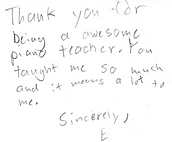 Thank you for
being a awesome
piano teacher. You
taught me so much
and it means a lot to
me.
Sincerely,
E